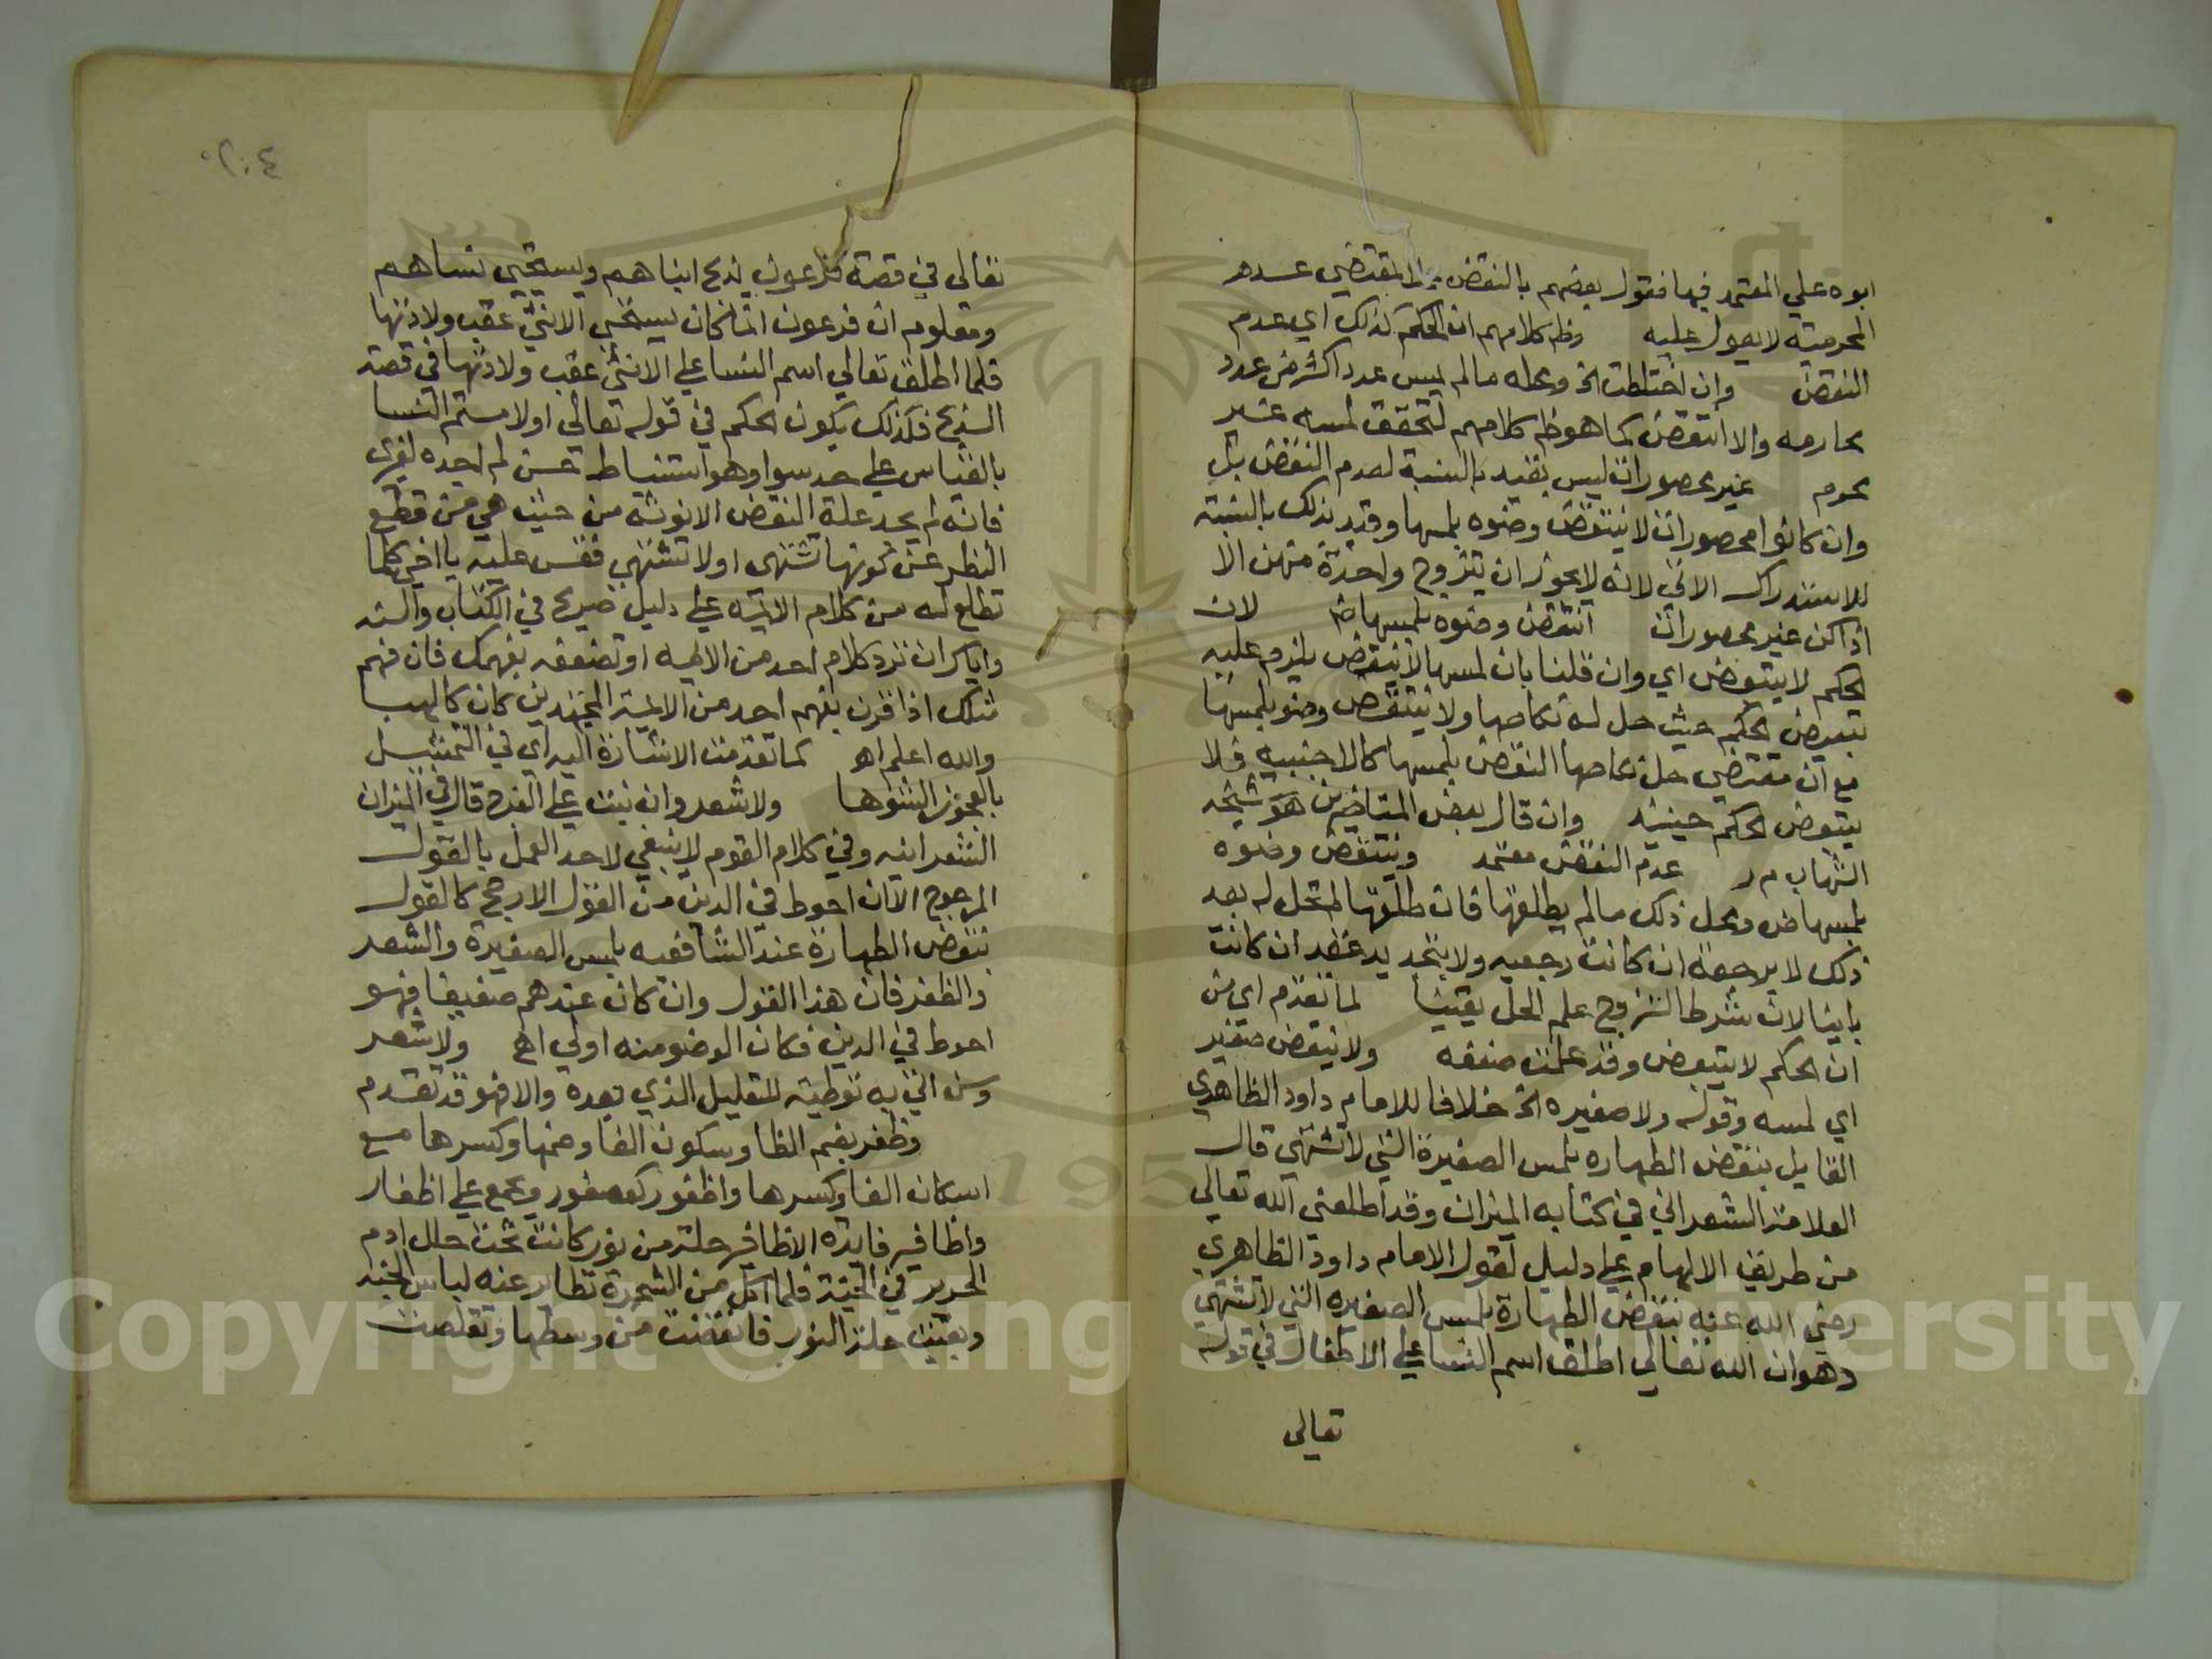 ابوه علي المعتمد فيها فقول بعضهم بالنقض المقتضي عدم
المحرمية لا يعول عليه وظ كلامهم ان الحكم كذلك اي عدم
النقض وان اختلطت الخ ومحله مالم يمس عددا اكثر من عدد
محارمه والا انتقض كما هو ظ كلامهم لتحقق لمسه غير
محرم غير محصورات ليس بقيد بالنسبة لعدم النقض بل
وان كانوا محصورات لا ينتقض وضوه بلمسها وقيد بذلك بالنسبة
للاستدراك الاتي لانه لا يجوز ان يتزوج واحدة منهن الا
اذا كن غير محصورات انتقض وضوه بلمسها لان
الحكم لا يتبعض اي وان قلنا بان لمسها لا ينقض يلزم عليه
تبعيض الحكم حيث حل له نكاحها ولا ينتقض وضو بلمسها
مع ان مقتضي حل نكاحها النقض بلمسها كالاجنبيه فلا
يتبعض الحكم حينيذ وان قال بعض المتاخرين هو شيخه
الشهاب م ر عدم النقض معتمد وينتقض وضوه
بلمسها ومحل ذلك مالم يطلقها فان طلقها لم تحل له بعد
ذلك لا برجعة ان كانت رجعيه ولا بتجديد عقد ان كانت
باينا لان شرط التزوج علم الحل يقينا لما تقدم اي من
ان الحكم لا يتبعض وقد علمت ضعفه ولا ينقض صغير
اي لمسه وقوله ولا صغيره الخ خلافا للامام داود الظاهري
القايل بنقض الطهاره بلمس الصغيرة التي لا تشتهي قال
العلامة الشعراني في كتابه الميزان وقد اطلعني الله تعالي
من طريق الالهام علي دليل لقول الامام داود الظاهري
رضي الله عنه بنقض الطهارة بلمس الصغيره التي لا تشتهي
وهو ان الله تعالي اطلق اسم النسا علي الاطفال في قوله
تعالى
٢٠٤
تعالى في قصة فرعون يذبح ابناهم ويستحيي نساهم
ومعلوم ان فرعون انما كان يستحيي الانثى عقب ولادتها
فلما اطلق تعالي اسم النسا علي الانثى عقب ولادتها في قصة
الذبح فكذلك يكون الحكم في قوله تعالي اولامستم النسا
بالقياس علي حد سوا وهو استنباط حسن لم اجده لغيري
فانه لم يجد علة النقض الانوثه من حيث هي من قطع
النظر عن كونها تشتهى او لا تشتهي فقس عليه يا اخي كلما
تطلع له من كلام الايمه علي دليل صريح في الكتاب والسنه
واياك ان ترد كلام احد من الايمه او تضعفه بفهمك فان فهم
مثلك اذا قرن بفهم احد من الايمة المجتهدين كان كالهبا
والله اعلم اهـ كما تقدمت الاشارة اليه اي في التمثيل
بالعجوز الشوها ولا شعر وان نبت علي الفرج قال في الميزان
الشعرانيه وفي كلام القوم لا ينبغي لاحد العمل بالقول
المرجوح الا ان احوط في الدين من القول الارجح كالقول
بنقض الطهارة عند الشافعيه بلمس الصغيرة والشعر
والظفر فان هذا القول وان كان عندهم ضعيفا فهو
احوط في الدين فكان الوضو منه اولي اهـ ولا شعر
وسن اتي به توطية للتعليل الذي بعده والا فهو قد تقدم
وظفر بضم الظا وسكون الفا وضمها وكسرها مع
اسكان الفا وكسرها واظفور كعصفور ويجمع علي اظفار
واظافير فايدة الاظافير حلة من نور كانت تحت حلل ادم
الحرير في الجنة فلما اكل من الشجرة تطاير عنه لباس الجنه
وبقيت حلة النور فانقضت من وسطها وتقلصت